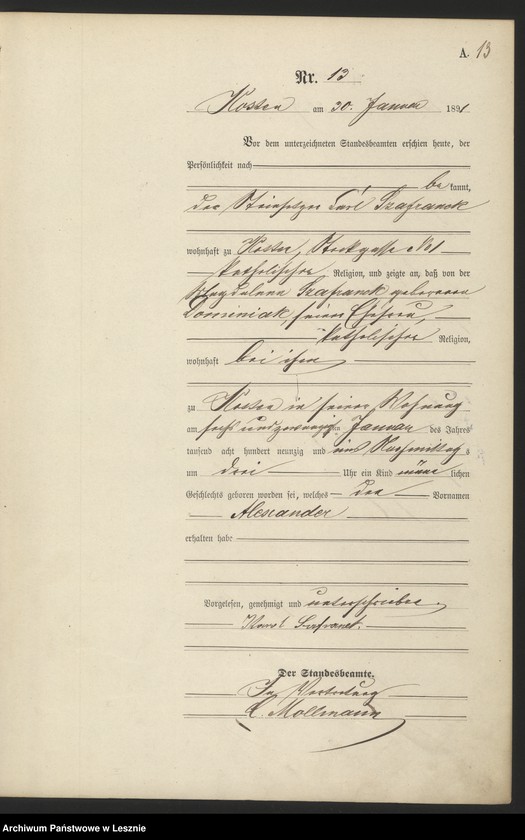 A. 13
Nr. 13
Kosten am 30. Januar 1891
Vor dem unterzeichneten Standesbeamten erschien heute, der
Persönlichkeit nach
be kannt,
der Steinsetzer Carl Szafranek
wohnhaft zu Kosten, Stockgasse No 1
katholischer Religion, und zeigte an, daß von der
Magdalena Szafranek geborenen
Dominiak, seiner Ehefrau,
katholischer Religion,
wohnhaft bei ihm
zu Kosten in seiner Wohnung
am sechs und zwanzigsten Januar des Jahres
tausend acht hundert neunzig und eins Nachmittags
um drei Uhr ein Kind männ lichen
Geschlechts geboren worden sei, welches den Vornamen
Alexander
erhalten habe
Vorgelesen, genehmigt und unterschrieben.
Karol
Der Standesbeamte.
In Vertretung
Mollmann
Archiwum Państwowe w Lesznie